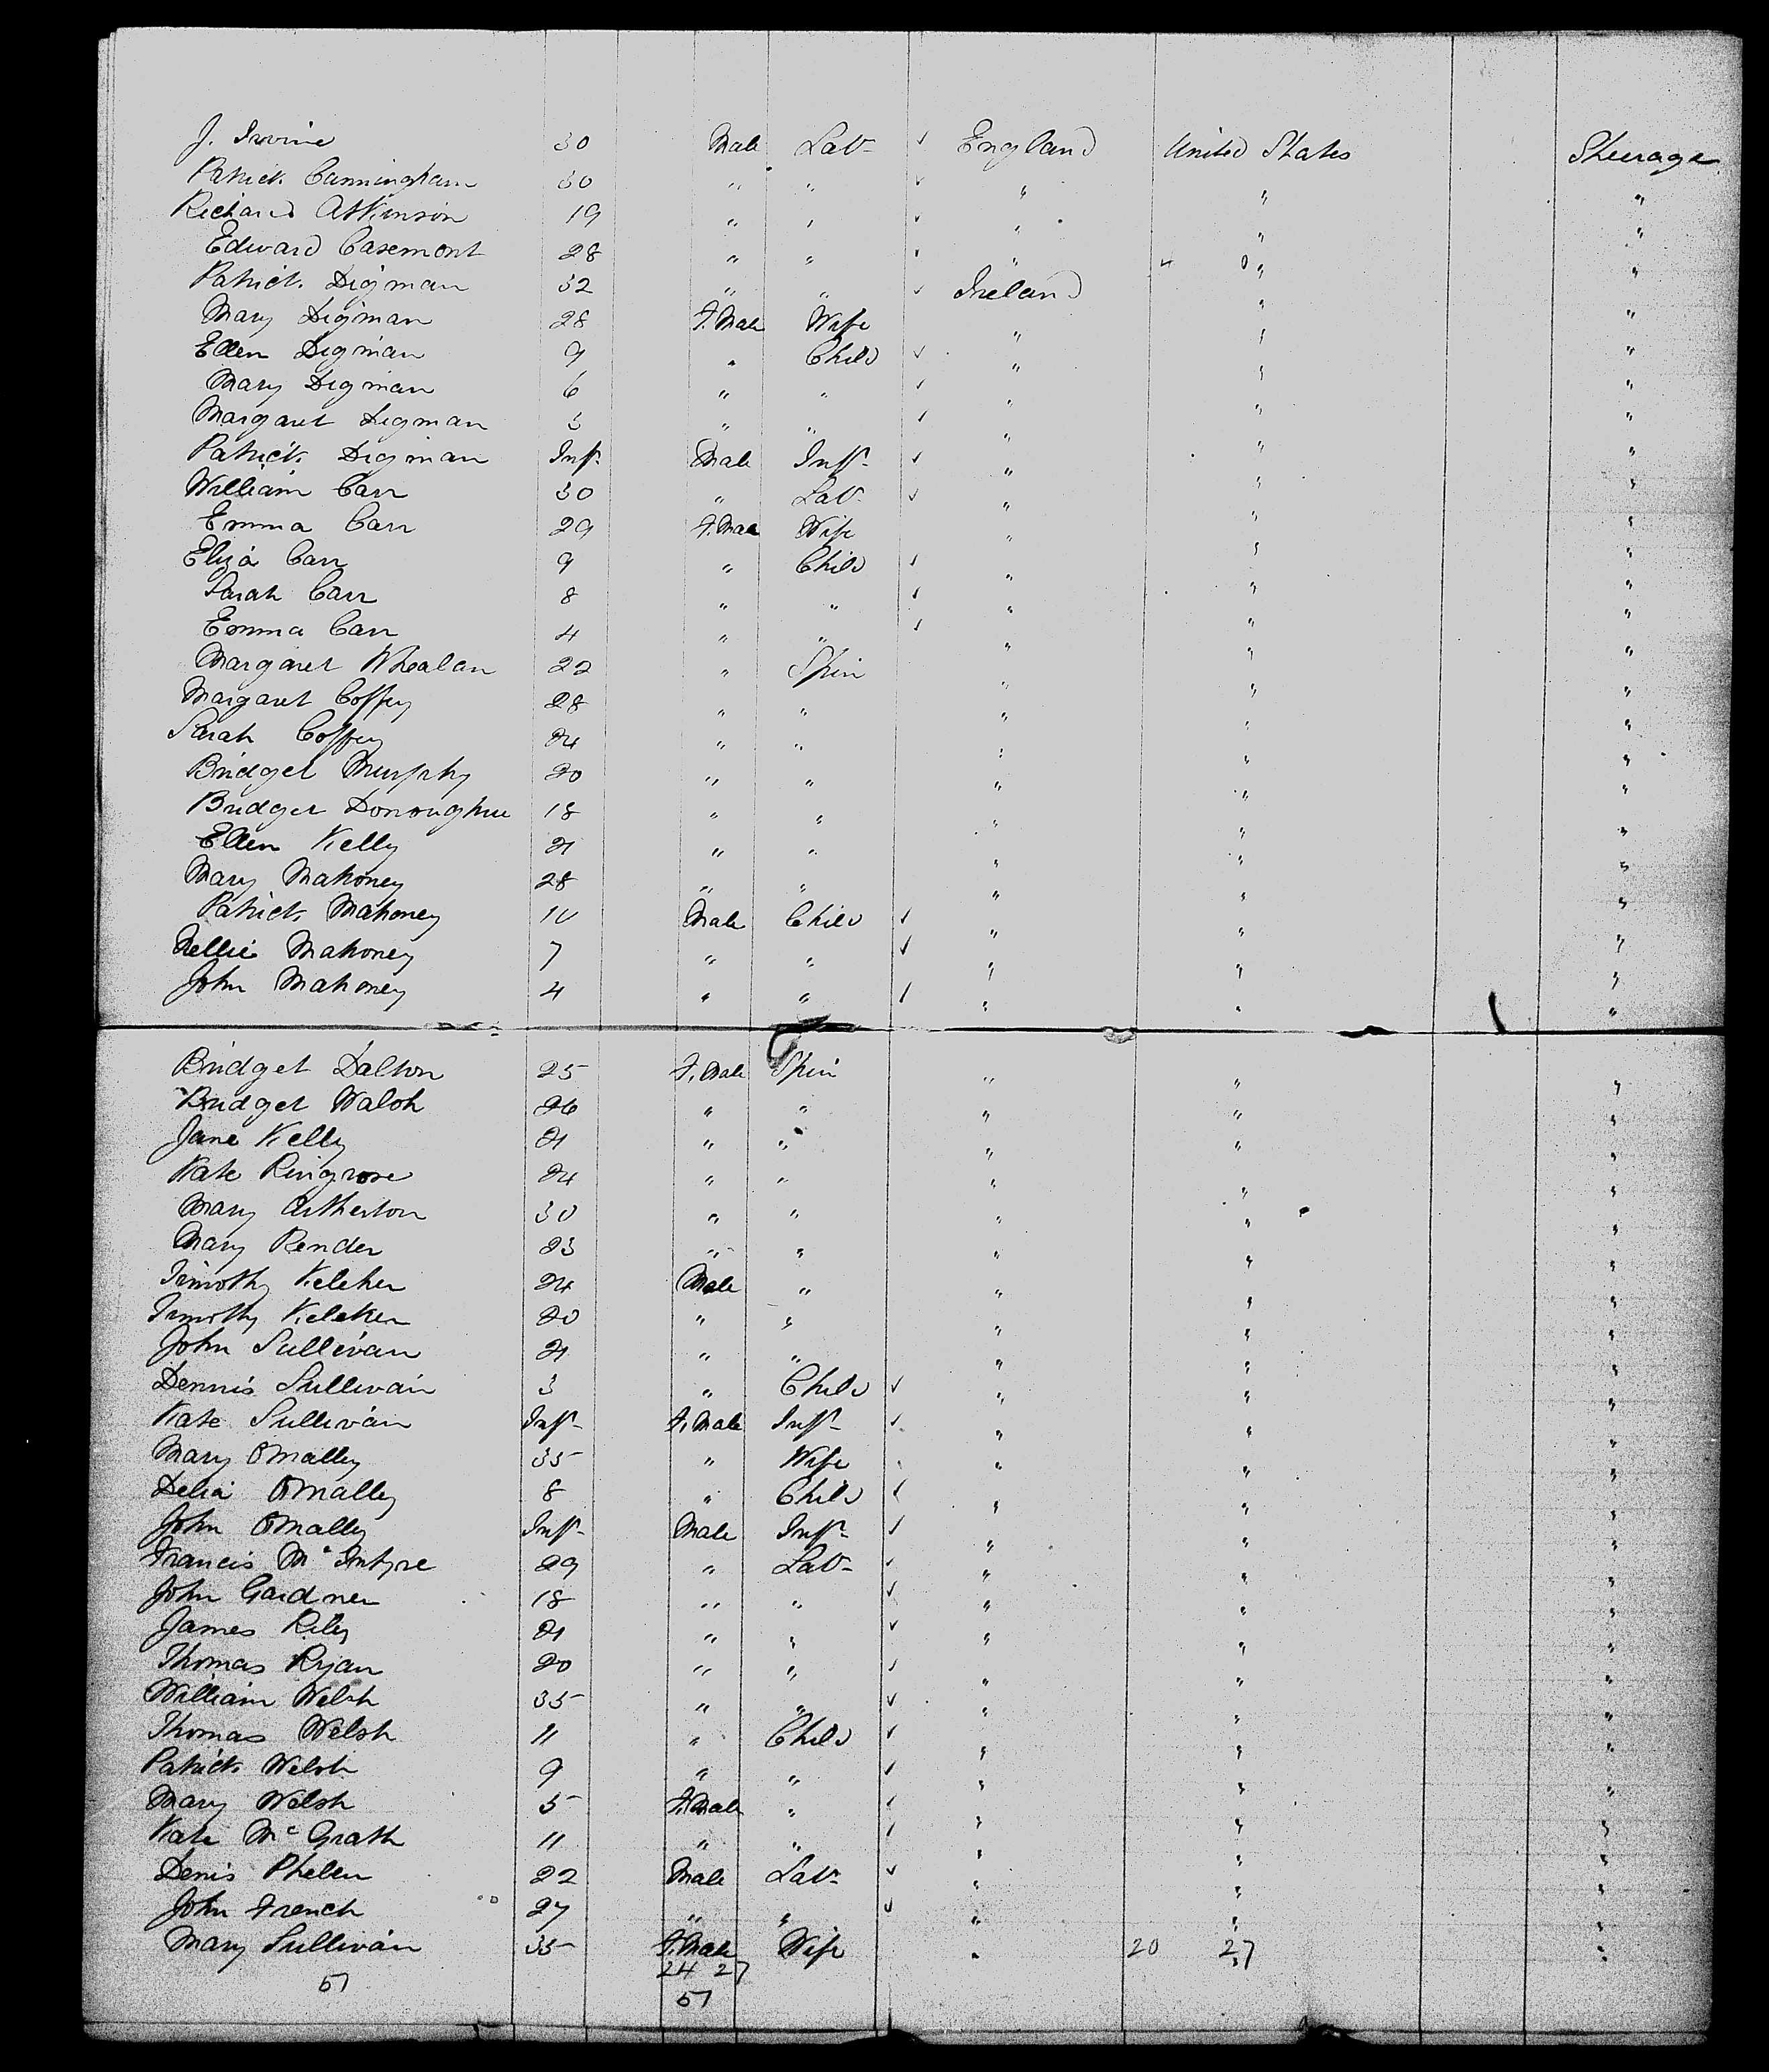 J. Irvine 30 Male Lab- ✓ England United States Steerage
Patrick Cunningham 30 " " ✓ " " "
Richard Atkinson 19 " " ✓ " " "
Edward Casemont 28 " " " " "
Patrick Digman 32 " " ✓ Ireland " "
Mary Digman 28 F.Male Wife " " "
Ellen Digman 9 " Child ✓ " " "
Mary Digman 6 " " ✓ " " "
Margaret Digman 3 " " ✓ " " "
Patrick Digman Inft- Male Inft- ✓ " " "
William Carr 30 " Lab- ✓ " " "
Emma Carr 29 F.Male Wife " " "
Eliza Carr 9 " Child ✓ " " "
Sarah Carr 8 " " ✓ " " "
Emma Carr 4 " " ✓ " " "
Margaret Whealan 22 " Spin " " "
Margaret Coffey 28 " " " " "
Sarah Coffey 24 " " " " "
Bridget Murphy 20 " " " " "
Bridget Donoughue 18 " " " " "
Ellen Kelly 21 " " " " "
Mary Mahoney 28 " " " " "
Patrick Mahoney 10 Male Child ✓ " " "
Nellie Mahoney 7 " " ✓ " " "
John Mahoney 4 " " ✓ " " "
Bridget Dalton 25 F.Male Spin " " "
Bridget Walsh 26 " " " " "
Jane Kelly 21 " " " " "
Kate Ringrose 24 " " " " "
Mary Artherton 30 " " " " "
Mary Render 23 " " " " "
Timothy Keleher 24 Male " " " "
Timothy Keleker 20 " " " " "
John Sullivan 21 " " " " "
Dennis Sullivan 3 " Child ✓ " " "
Kate Sullivan Inft- F.Male Inft- ✓ " " "
Mary OMalley 35 " Wife " " "
Delia OMalley 8 " Child ✓ " " "
John OMalley Inft- Male Inft- ✓ " " "
Francis McIntyre 29 " Lab- ✓ " " "
John Gardner 18 " " ✓ " " "
James Riley 21 " " ✓ " " "
Thomas Ryan 20 " " ✓ " " "
William Welsh 35 " " ✓ " " "
Thomas Welsh 11 " Child ✓ " " "
Patrick Welsh 9 " " ✓ " " "
Mary Welsh 5 F.Male " ✓ " " "
Kate McGrath 11 " " ✓ " " "
Denis Phelen 22 Male Lab- ✓ " " "
John French 27 " " ✓ " " "
Mary Sullivan 35 F.Male Wife " 20 27 "
51 24 27
51